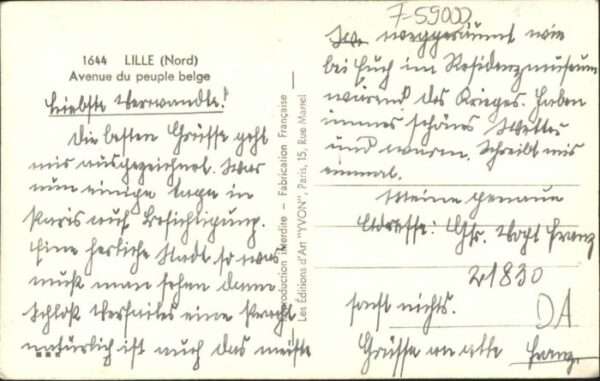 7-59000
1644 LILLE (Nord)
Avenue du peuple belge
Liebste Verwandte!
Die besten Grüsse geht
mir ausgezeichnet. War
nun einige Tage in
Paris auf Besichtigung.
Eine herliche Stadt so was
muß man sehen dann
Schloß Versailes eine Pracht
natürlich ist auch das meiste
Reproduction interdite – Fabrication Française
Les Éditions d'Art "YVON", Paris, 15, Rue Martel
weggeräumt wie
bei Euch im Residenzmuseum
würend des Krieges. Haben
immer schöns Wetter
und warm. Schreibt mir
einmal.
Meine genaue
Adresse: Gfr. Vogt Franz
21830
sonst nichts.
DA
Grüsse an alle Franz